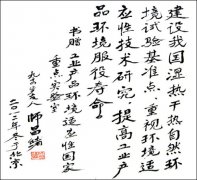 建设我国湿热干热自然环
境试验基准点，重视环境适
应性技术研究，提高工业产
品环境服役寿命
书赠工业产品环境适应性国家
重点实验室
师昌绪
二〇一二年冬于北京